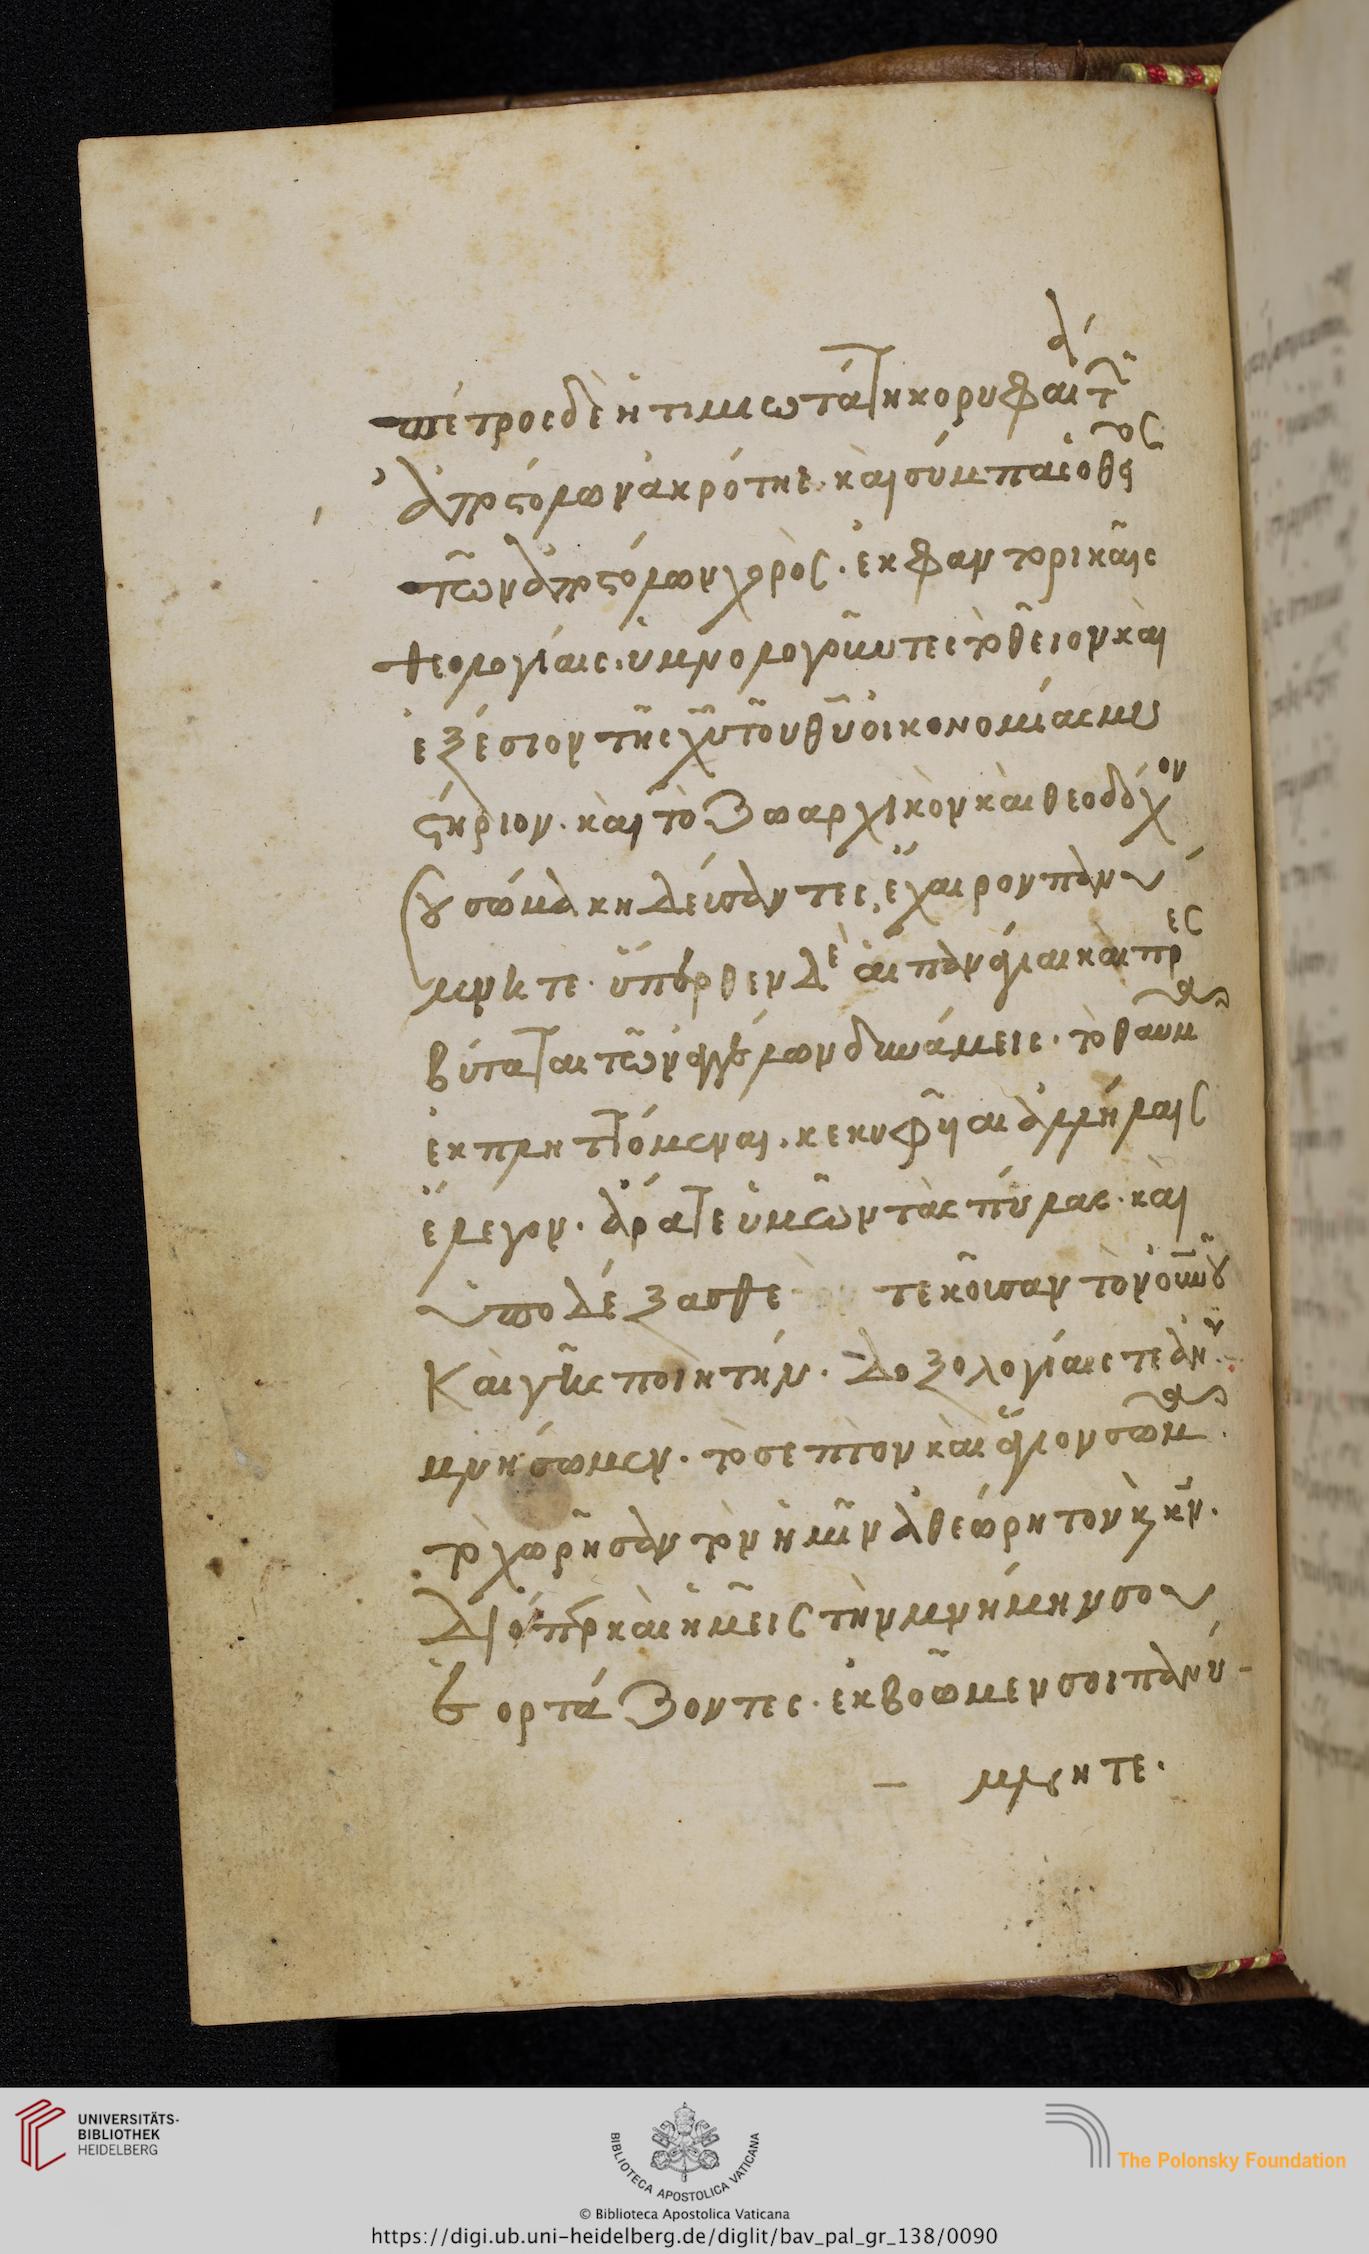 πέτρος δὲ ἡ τιμιωτάτη κορυφαιτ̃ά
ἀπϛόλων ἀκρότης· καὶ σύμπας ὁ θεῖος
τῶν ἀπϛόλων χορὸς· ἐκφαντορικαῖς
θεολογίαις· ὑμνολογοῦντες τὸ θεῖον καὶ
ἐξέσιον τῆς χῦ τοῦ θῦ οἰκονομίας μυ
ϛήριον· καὶ τὸ ζωαρχικὸν καὶ θεοδόχον
σου σῶμα κηδεύσαντες, ἔχαιρον πανύ
μνητε· ὕπερθεν δὲ αἱ πανάγιαι καὶ πρες
βύταται τῶν ἀγγέλων δυνάμεις· τὸ θαῦμα
ἐκπληττόμεναι· κεκυφυῖαι ἀλλήλαις
ἔλεγον· ἄρατε ὑμῶν τὰς πύλας· καὶ
ὑποδέξασθε τεκοῦσαν τὸν οὐνοῦ
Καὶ γῆς ποιητήν· δοξολογίαις τε ἀνυ
μνήσωμεν· τὸ σεπτὸν καὶ ἅγιον σῶμα·
τὸ χωρῆσαν τὸν ἡμῖν ἀθεώρητον κ̅ν̅·
Διόπερ καὶ ἡμεῖς τὴν μνήμην σου
ἑορτάζοντες· ἐκβοῶμεν σοι πανύ-
— μνητε·
UNIVERSITÄTS-
BIBLIOTHEK
HEIDELBERG
BIBLIOTECA APOSTOLICA VATICANA
The Polonsky Foundation
© Biblioteca Apostolica Vaticana
https://digi.ub.uni-heidelberg.de/diglit/bav_pal_gr_138/0090